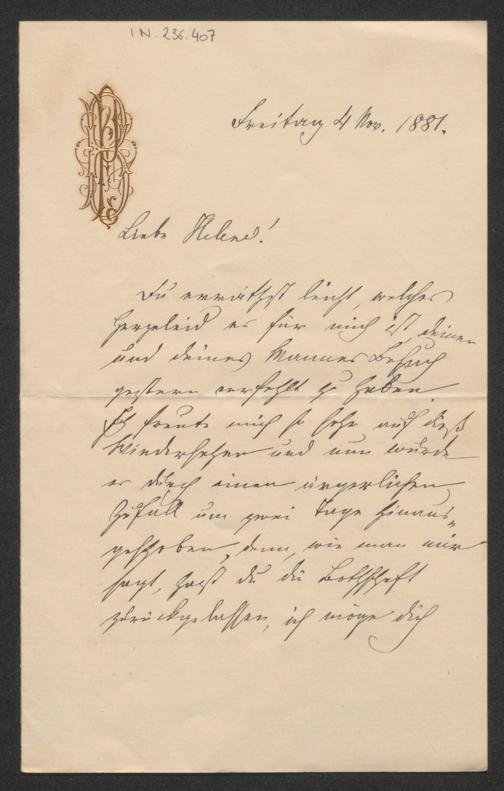 I.N. 236.407
Freitag 4 Nov. 1881.
Liebe Helene!
Du erräthst leicht, welches
Herzeleid es für mich ist, deinen
und deines Mannes Besuch
gestern verfehlt zu haben.
Ich freute mich so sehr auf dieß
Wiedersehen und nun wurde
es durch einen ärgerlichen
Zufall um zwei Tage hinaus-
geschoben, denn, wie man mir
sagt, hast du die Bothschaft
zurückgelassen, ich möge dich